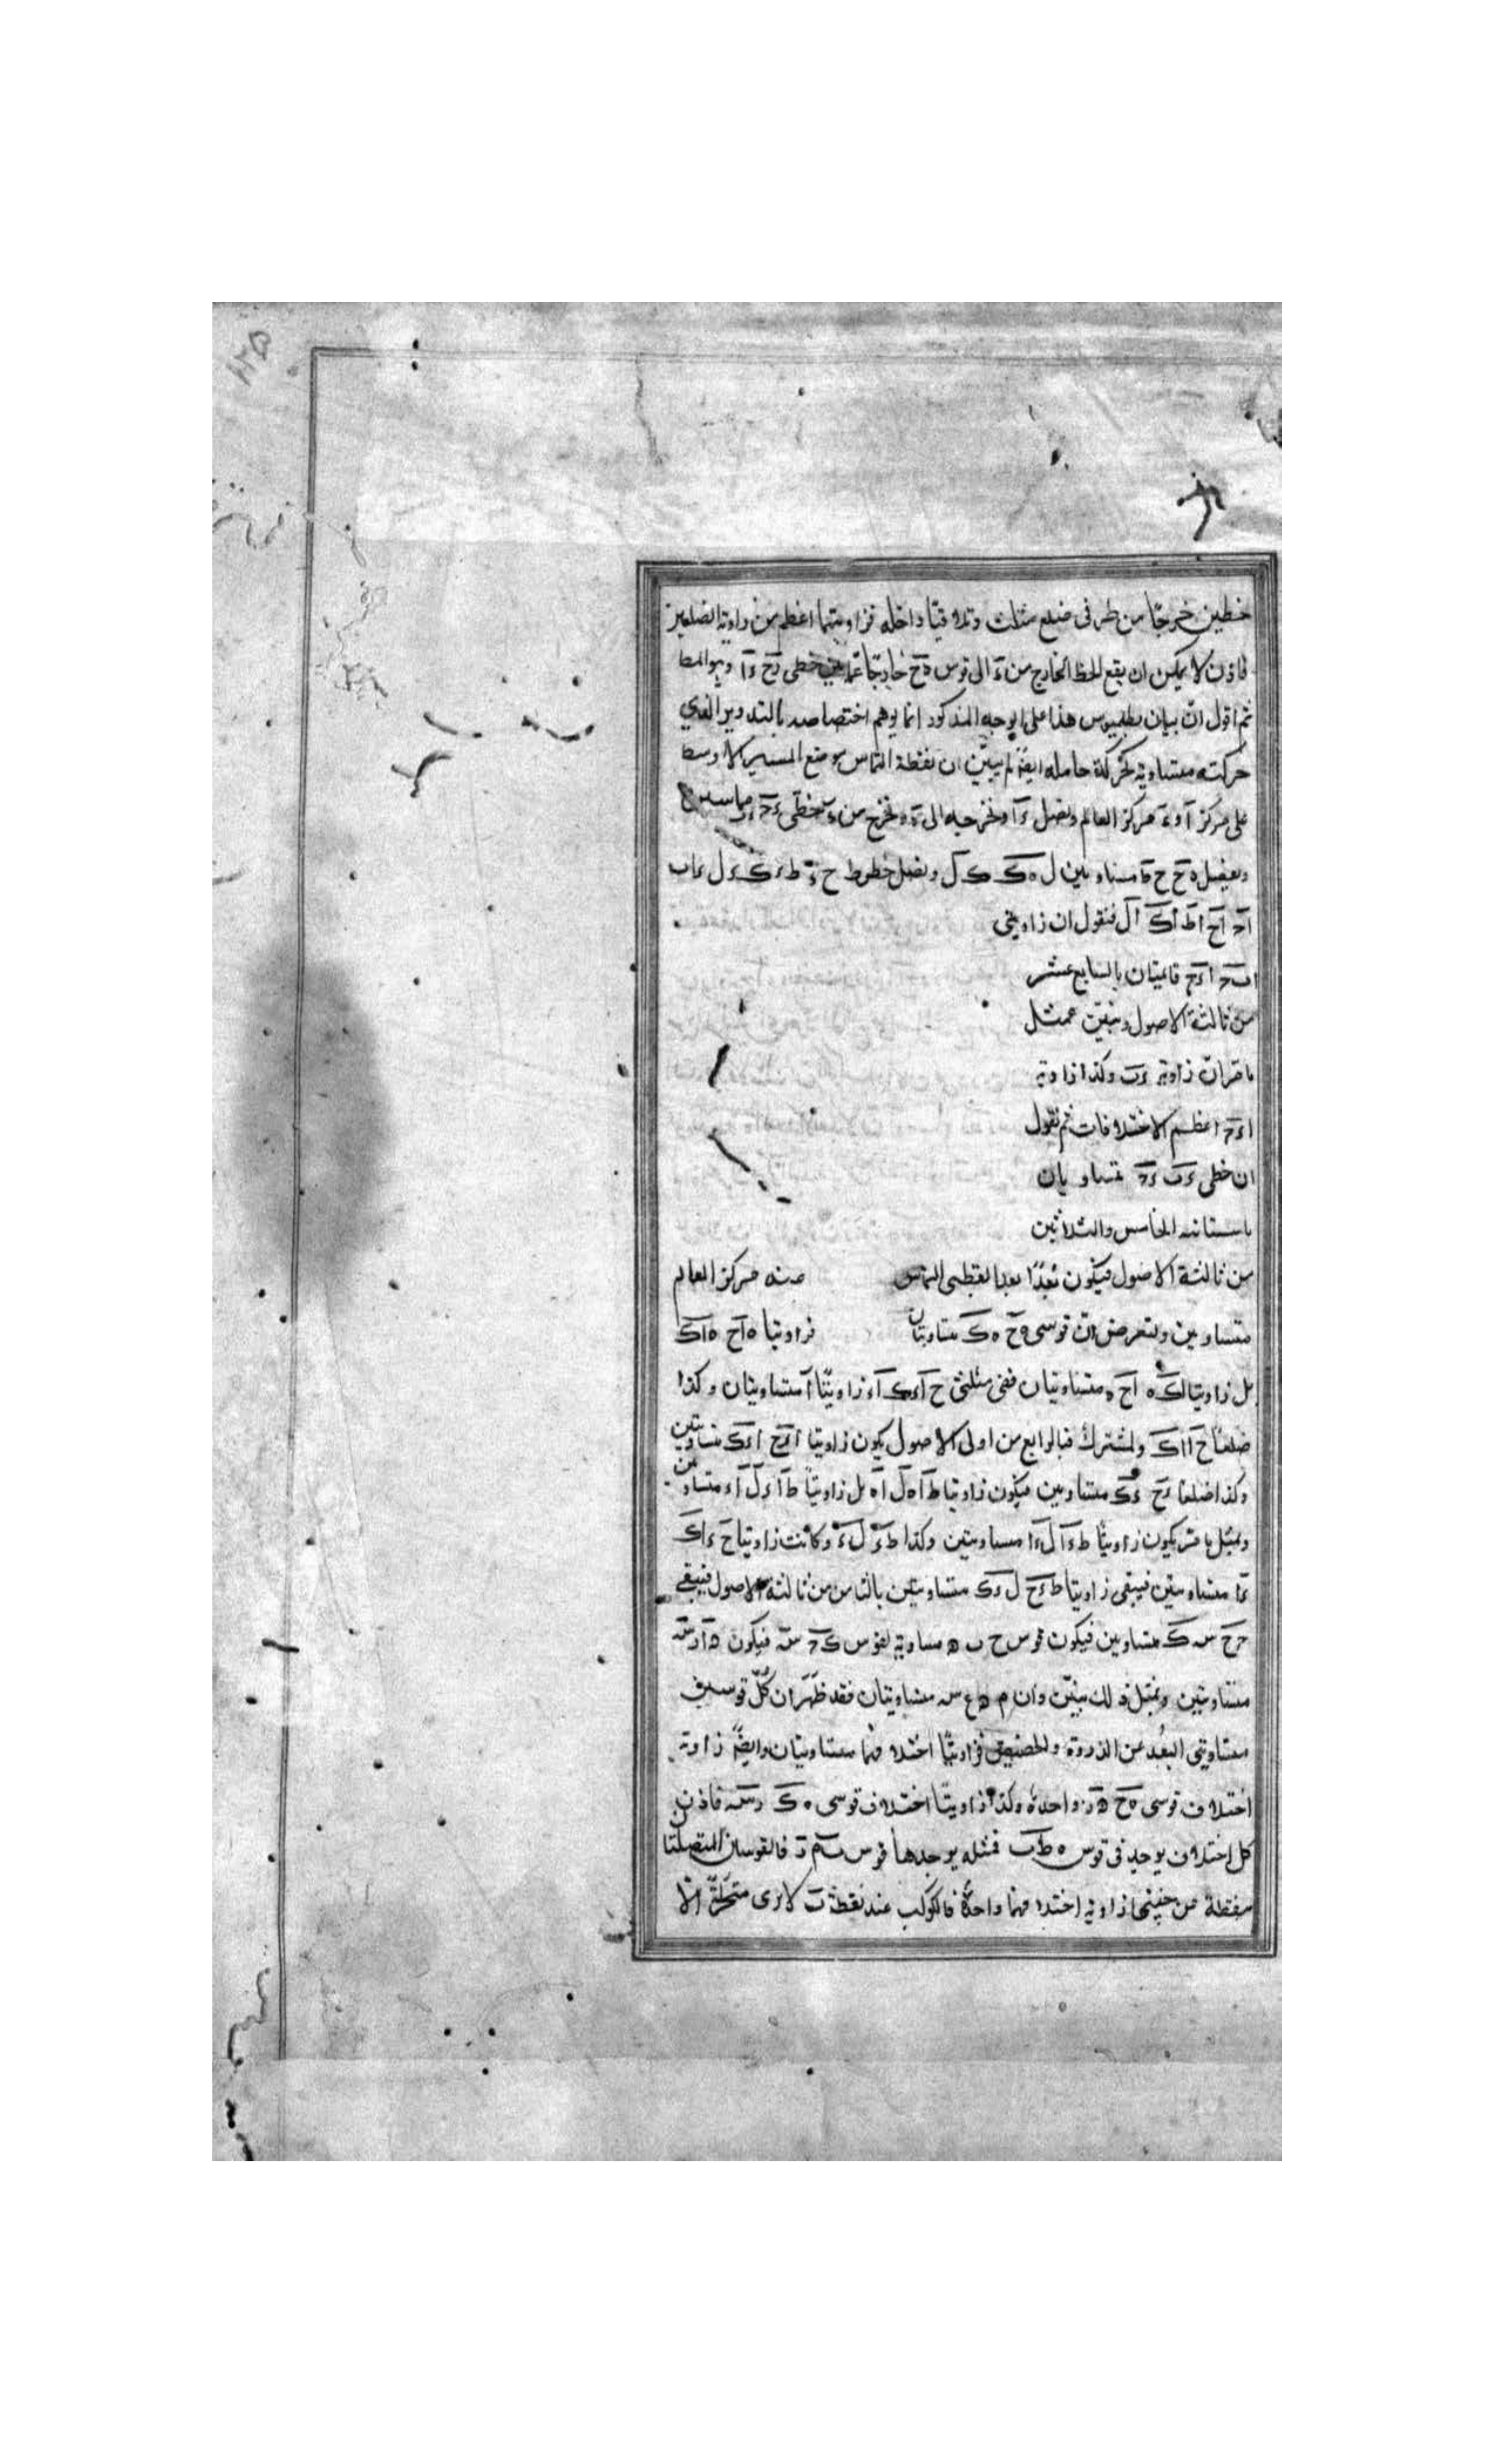 خطين خرجتا من طرفى ضلع مثلث وتلاقيتا داخله فزاويتهما اعظم من زاوية الضلعين
فاذن لا يمكن ان يقع الخط الخارج من ءَ الى قوس ه ح خارجًا عما بين خطى ءح ءا وهو المط
ثم اقول ان بيان بطلميوس هذا على الوجه المذكور انما يوهم اختصاصه بالتدوير الذي
حركته مساوية لحركة حامله ايضًا لم يبين ان نقطة التماس موضع المسير الاوسط
على مركز آ و ءَ مركز العالم ونصل ءا ونخرجه الى ه ونخرج من ءَ خطى
ونفصل ه ح ح ط متساويين ل ه ك ك ل ونصل خطوط ح ء ط ء ك ء ل ء اب
اج اح اط اك ال فنقول ان زاويتى
اب ء اءج قائمتان بالسابع عشر
من ثالثة الاصول ونبين بمثل
ما مر ان زاوية ءب وكذا زاوية
اءج اعظم الاختلافات ثم نقول
ان خطى ءب ءج متساويان
باستبانة الخامس والثلاثين
من ثالثة الاصول فيكون بُعدًا بعدا نقطتى التماس منه مركز العالم
متساويين ولنعرض ان قوسى ه ح ه ك متساويتان فزاويتا ه ا ح ه ا ك
بل زاويتا ك ه اح ه متساويتان ففى مثلثى ح اء ك اء زاويتا آ متساويتان وكذا
ضلعا ح ا ا ك والمشترك فبالرابع من اولى الاصول يكون زاويتا اءح اءك متساويتين
وكذا ضلعا ءح ءك متساويين فيكون زاويتا ط اه ل اه بل زاويتا ط اء ل اء متساويتين
وبمثل ما مر يكون زاويتا ط ءا ل ءا متساويتين وكذا ط ء ل ء وكانت زاويتا ح ءا ك
ءا متساويتين فيبقى زاويتا ط ءح ل ءك متساويتين بالثامن من ثالثة الاصول فيبقى
متساويين فيكون قوس ح ب ه مساوية لقوس ك ج س فيكون
متساويتين وبمثل ذلك نبين وان م ه ع س متساويتان فقد ظهر ان كل قوسين
متساويتى البُعد عن الذروة والحضيض فزاويتا اختلافهما متساويتان وايضًا زاوية
اختلاف قوسى ه ح ه ر واحدة وكذا زاويتا اختلاف قوسى ه ك ر س فاذن
كل اختلاف يوجد فى قوس ه ط ب فمثله يوجدها قوس ب م ر فالقوسان المتصلتان
بنقطة من جنبتها زاوية اختلافهما واحدة فالكوكب عند نقطة ب لا يرى متحركًا الّا